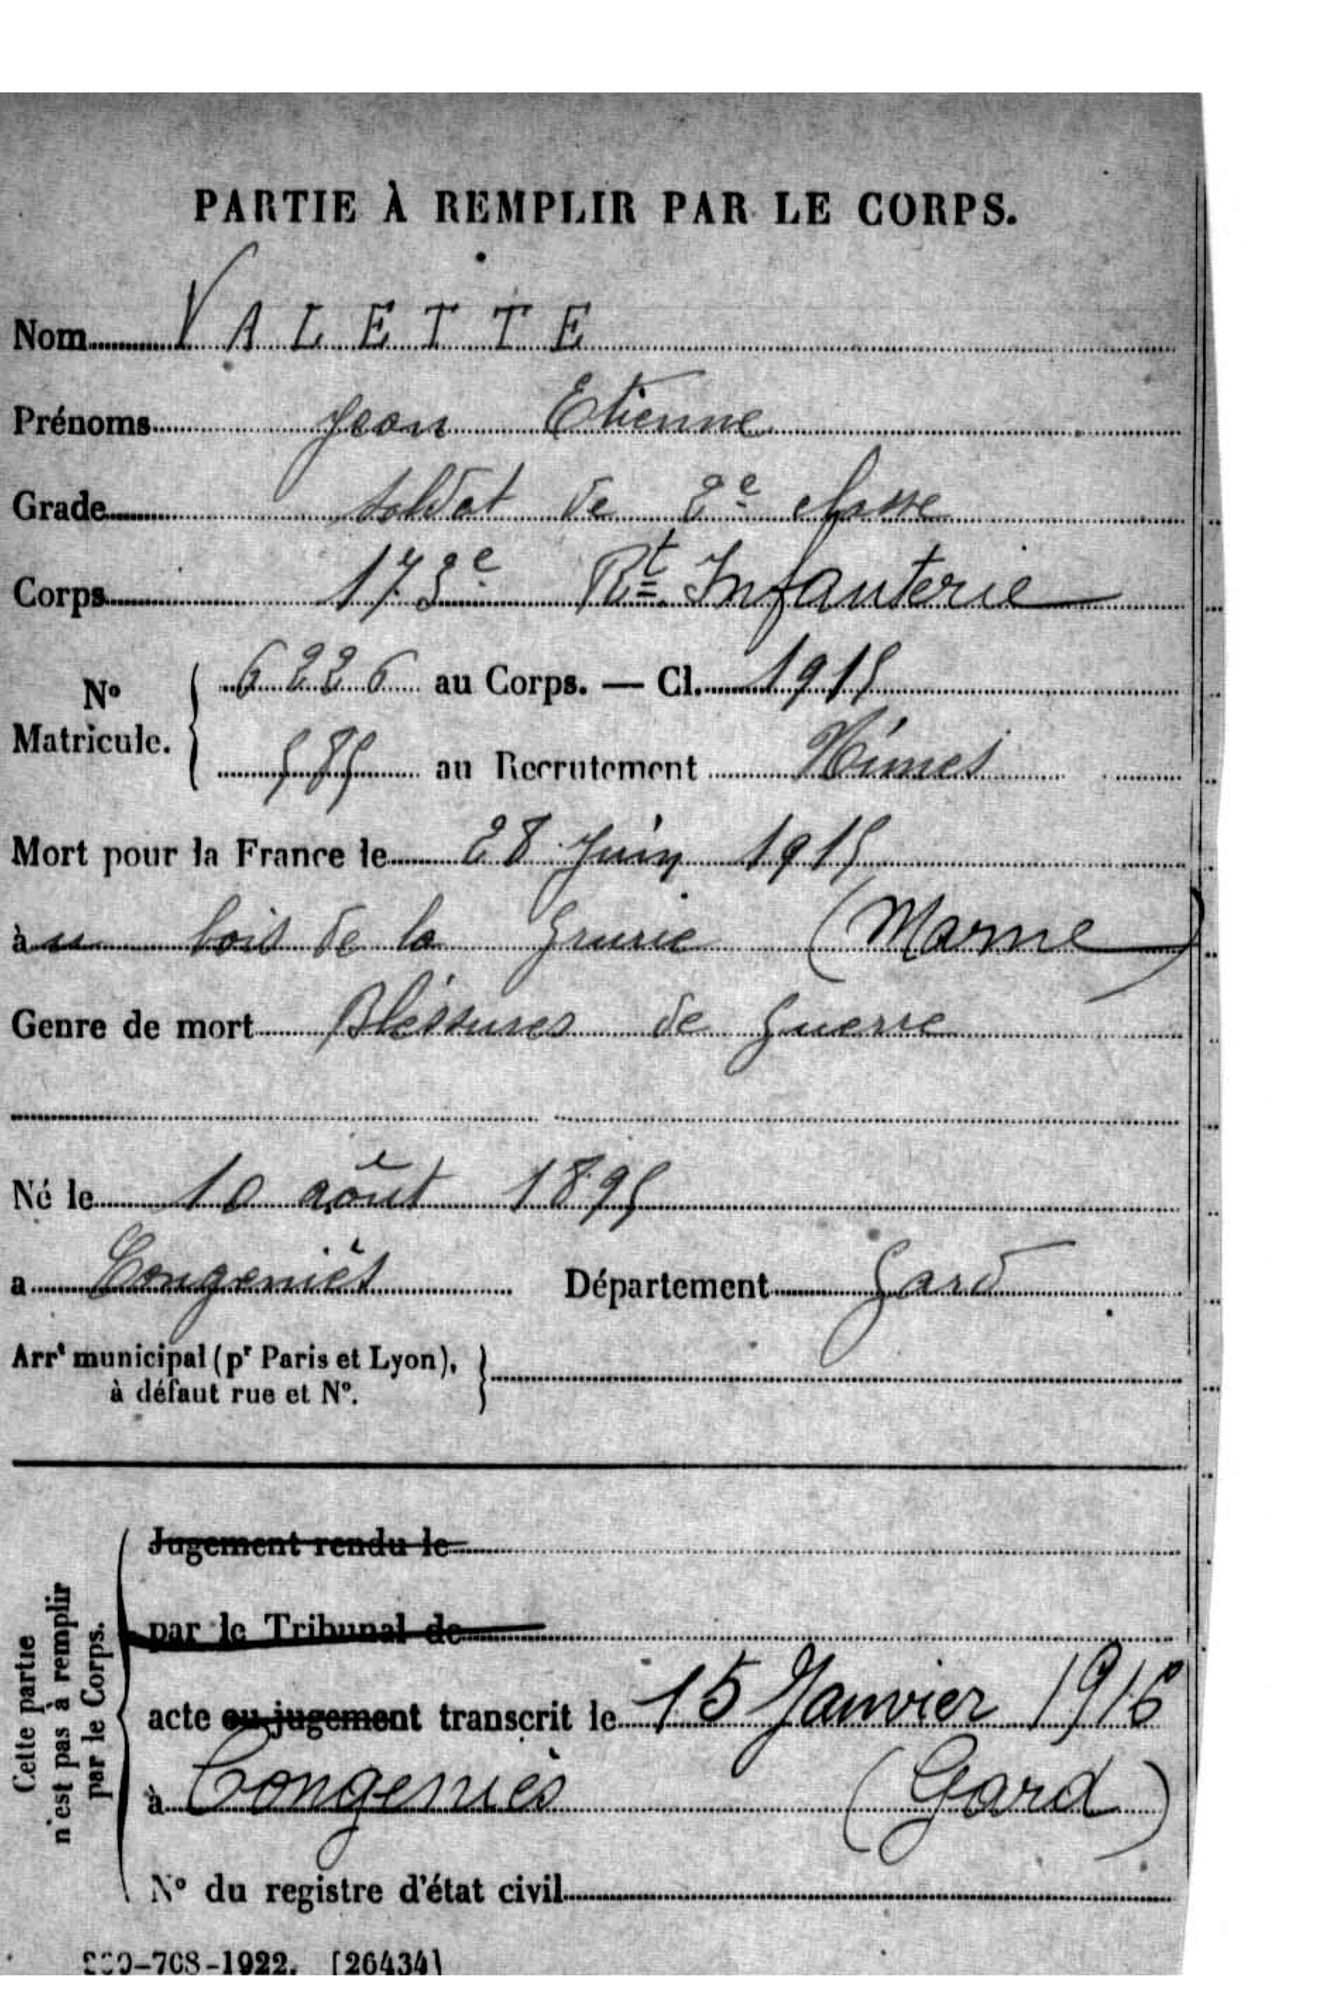 PARTIE À REMPLIR PAR LE CORPS.
Nom VALETTE
Prénoms Jean Etienne
Grade soldat de 2e classe
Corps 173e Rt Infanterie
No Matricule. 6226 au Corps. — Cl. 1915
585 au Recrutement Nîmes
Mort pour la France le 28 Juin 1915
àu bois de la Grurie (Marne)
Genre de mort Bléssures de guerre
Né le 10 août 1895
a Congeniès Département Gard
Arrt municipal (pr Paris et Lyon),
à défaut rue et No.
Cette partie
n'est pas à remplir
par le Corps.
Jugement rendu le
par le Tribunal de
acte ou jugement transcrit le 15 Janvier 1916
à Congeniès (Gard)
No du registre d'état civil
-708-1922. [26434]